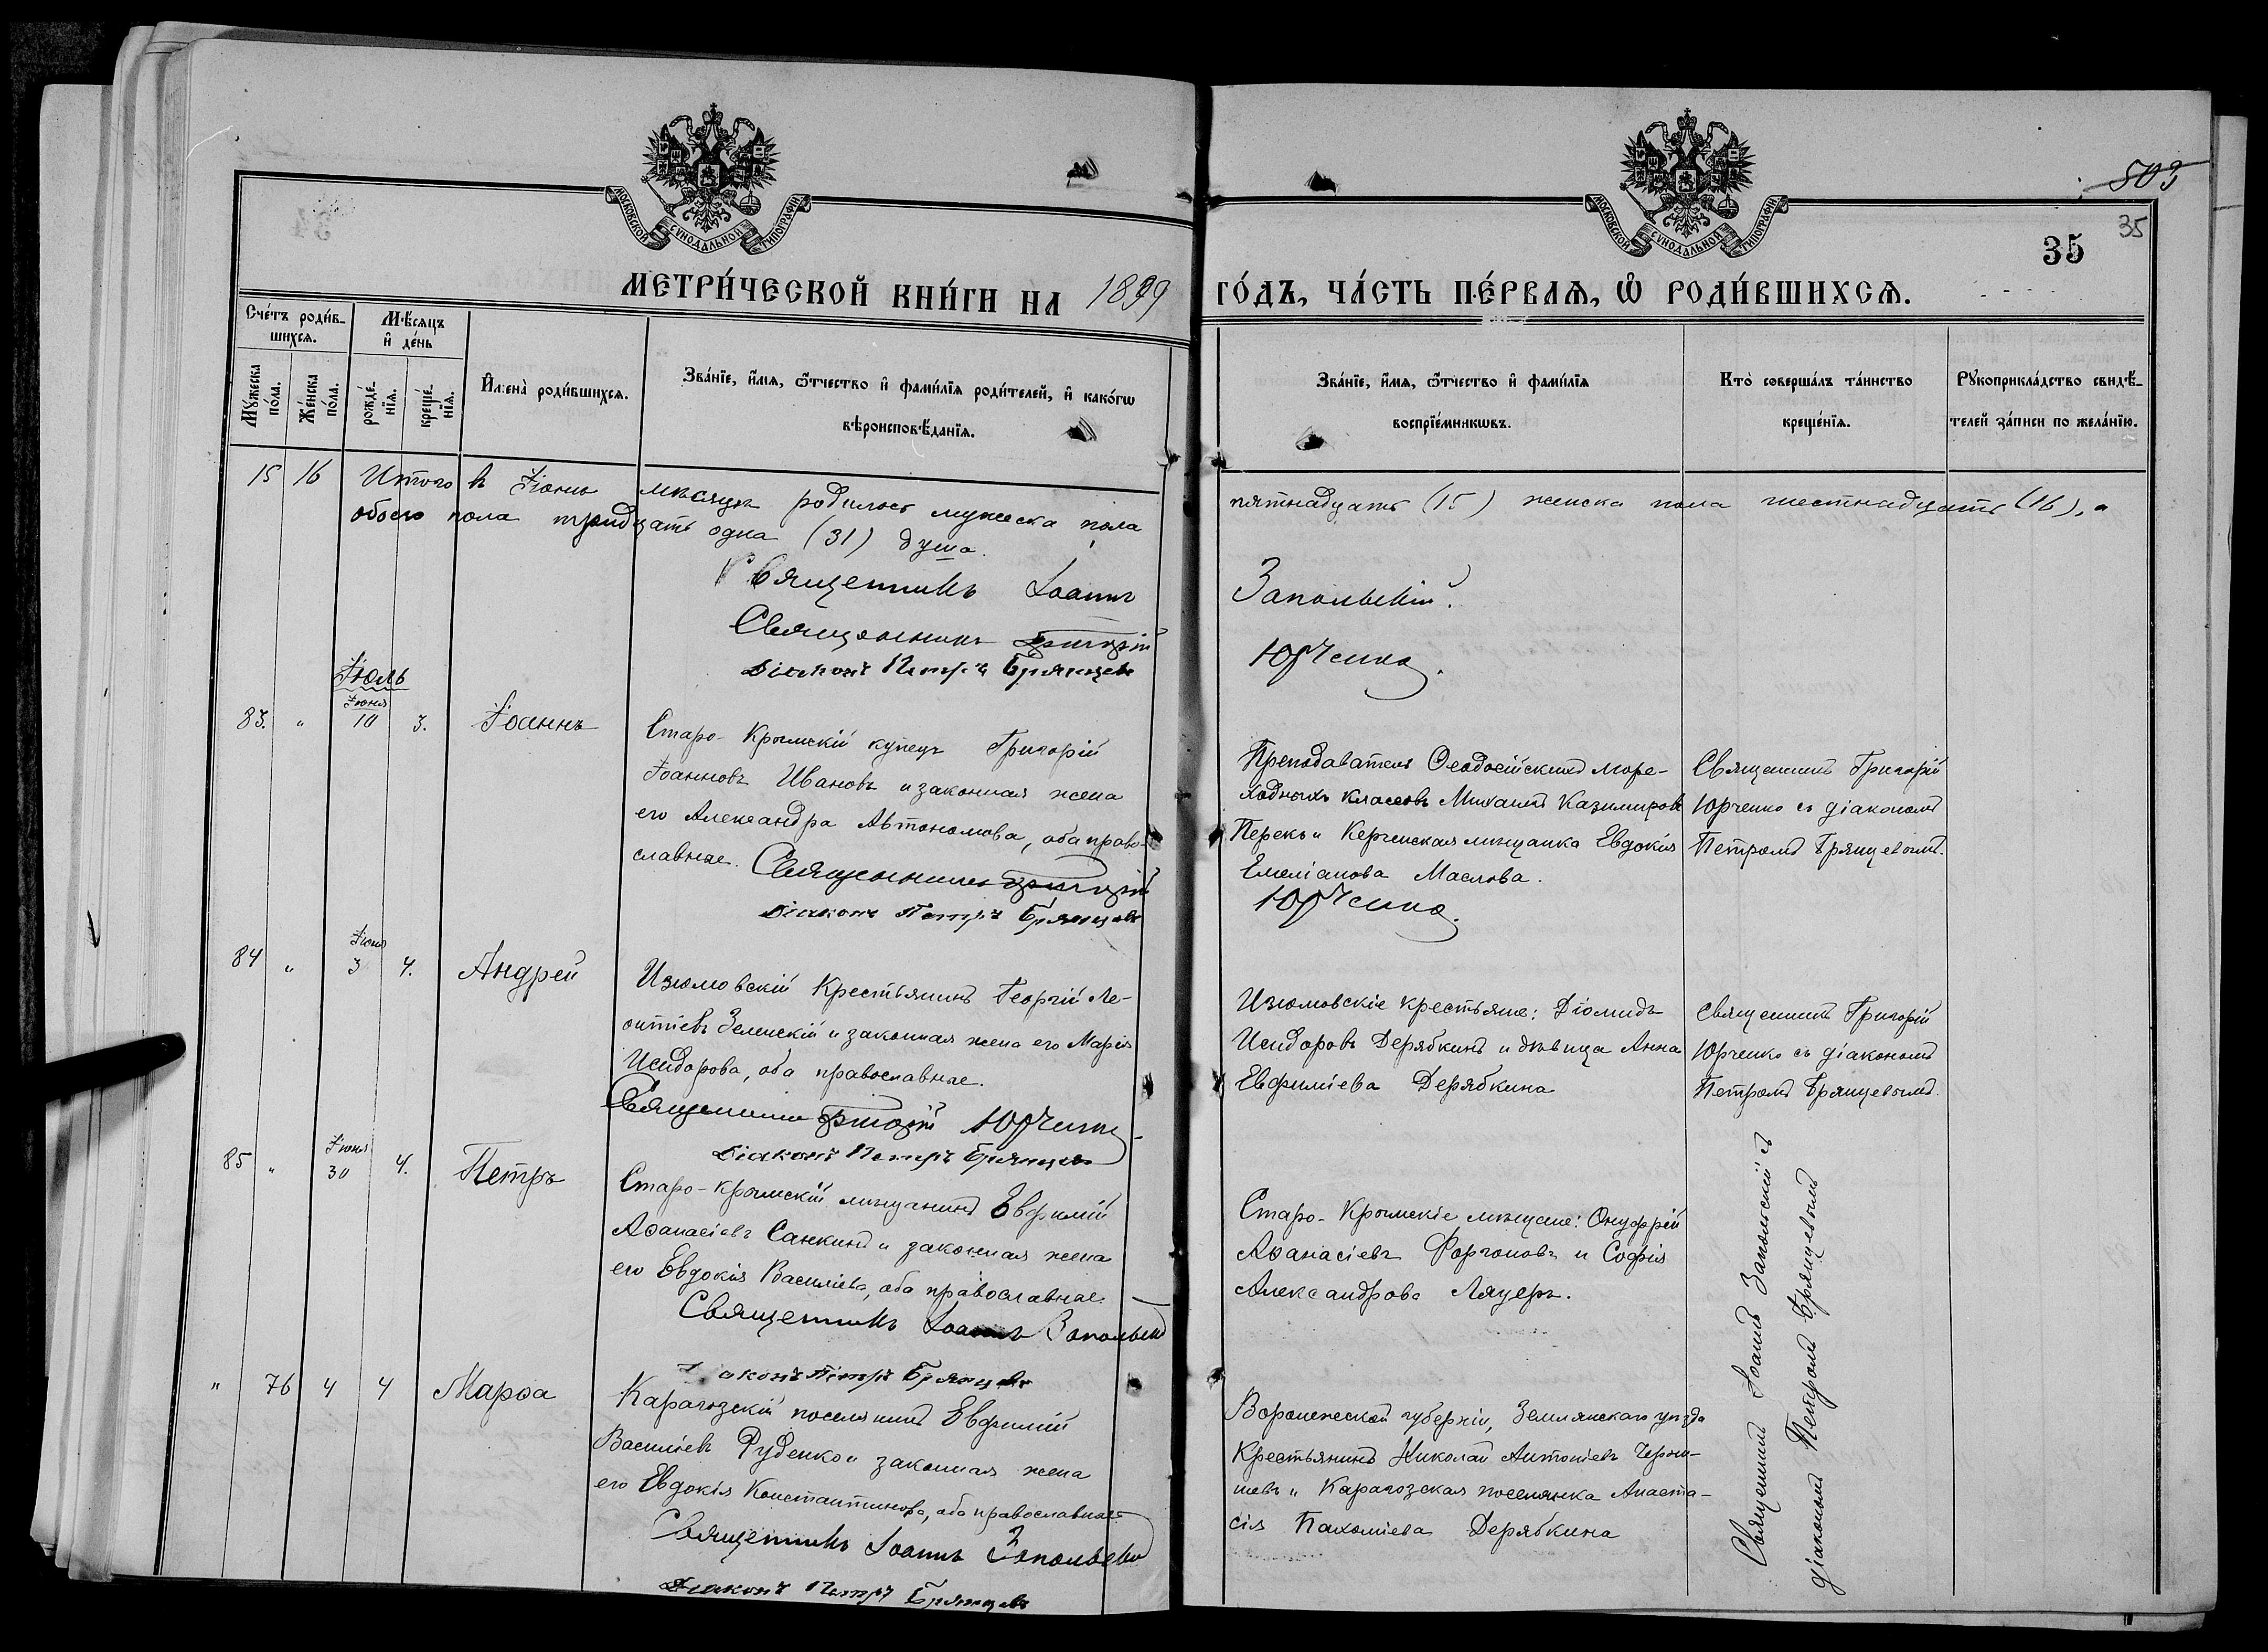 503
35
35
МОСКОВСКОЙ СѴНОДАЛЬНОЙ ТИПОГРАФІИ
МОСКОВСКОЙ СѴНОДАЛЬНОЙ ТИПОГРАФІИ
МЕТРИ́ЧЕСКОЙ КНИ́ГИ НА 1899 ГО́ДЪ, ЧА́СТЬ ПЕ́РВАѦ, Ѽ РОДИ́ВШИХСѦ.
Сче́тъ роди́в-
шихсѧ.
Мѣ́сяцъ
и҆ де́нь
Мꙋ́жеска
по́ла.
Же́нска
по́ла.
рожде́-
нїѧ.
креще́-
нїѧ.
И҆мена̀ роди́вшихсѧ.
Зва́нїе, и҆́мѧ, ѻ҆́тчество и҆ фами́лїѧ роди́телей, и҆ како́гѡ
вѣроисповѣ́данїѧ.
Зва́нїе, и҆́мѧ, ѻ҆́тчество и҆ фами́лїѧ
воспрїе́мникѡвъ.
Кто̀ соверша́лъ та́инство
креще́нїѧ.
Рꙋкоприкла́дство свидѣ́-
телей за́писи по жела́нїю.
15 16 Итого въ Іюнѣ мѣсяцѣ родилось мужеска пола пятнадцать (15) женска пола шестнадцать (16), а
обоего пола тридцать одна (31) душа.
Священникъ Іоаннъ Запольскій.
Священникъ Григорій Юрченко.
Діаконъ Петръ Брянцевъ
Іюль
83. " Іюня 10 3. Іоаннъ
Старо-Крымскій купецъ Григорій
Іоанновъ Ивановъ и законная жена
его Александра Автономова, оба право-
славные. Священникъ Григорій Юрченко.
Діаконъ Петръ Брянцевъ
Преподаватель Ѳеодосійскихъ море-
ходныхъ классовъ Михаилъ Казимировъ
и Керченская мѣщанка Евдокія
Емеліанова Маслова.
Священникъ Григорій
Юрченко съ діакономъ
Петромъ Брянцевымъ.
84 " Іюня 3 4. Андрей
Изюмовскій крестьянинъ Георгій Ле-
онтіевъ Зеленскій и законная жена его Марія
Исидорова, оба православные.
Священникъ Григорій Юрченко
Діаконъ Петръ Брянцевъ
Изюмовскіе крестьяне: Діомидъ
Исидоровъ Дерябкинъ и дѣвица Анна
Евфиміева Дерябкина
Священникъ Григорій
Юрченко съ діакономъ
Петромъ Брянцевымъ.
85 " Іюня 30 4. Петръ
Старо-Крымскій мѣщанинъ Евфимій
Аѳанасіевъ Санкинъ и законная жена
его Евдокія Василіева, оба православные.
Священникъ Іоаннъ Запольскій
Діаконъ Петръ Брянцевъ
Старо-Крымскіе мѣщане: Онуфрій
Аѳанасіевъ и Софія
Александрова
Священникъ Іоаннъ Запольскій съ
діакономъ Петромъ Брянцевымъ
" 76 4 4 Марѳа
Карагозскій поселянинъ Евфимій
Василіевъ Руденко и законная жена
его Евдокія Константинова, оба православные.
Священникъ Іоаннъ Запольскій
Діаконъ Петръ Брянцевъ
Воронежской губерніи, Землянскаго уѣзда
Крестьянинъ Николай Антоніевъ Черны-
шевъ и Карагозская поселянка Анаста-
сія Пахоміева Дерябкина